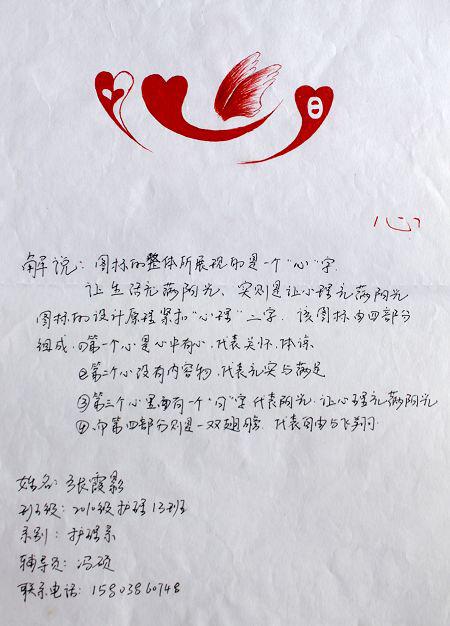 日
心
解说：图标的整体所展现的是一个“心”字.
让生活充满阳光、实则是让心理充满阳光
图标的设计原理紧扣“心理”二字. 该图标由四部分
组成.①第一个心是心中有心.代表关怀.体谅
②第二个心没有内容物.代表充实与满足
③第三个心里面有一个“日”字代表阳光.让心理充满阳光
④.而第四部分则是一双翅膀. 代表自由与飞翔.
姓名：张霞影
班级：2010级护理13班
系别：护理系
辅导员：冯硕
联系电话：15803860748